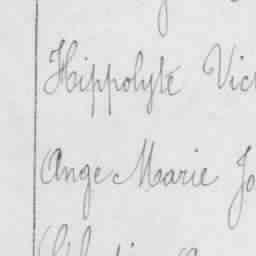 Hippolyte Vic
Ange Marie Jo